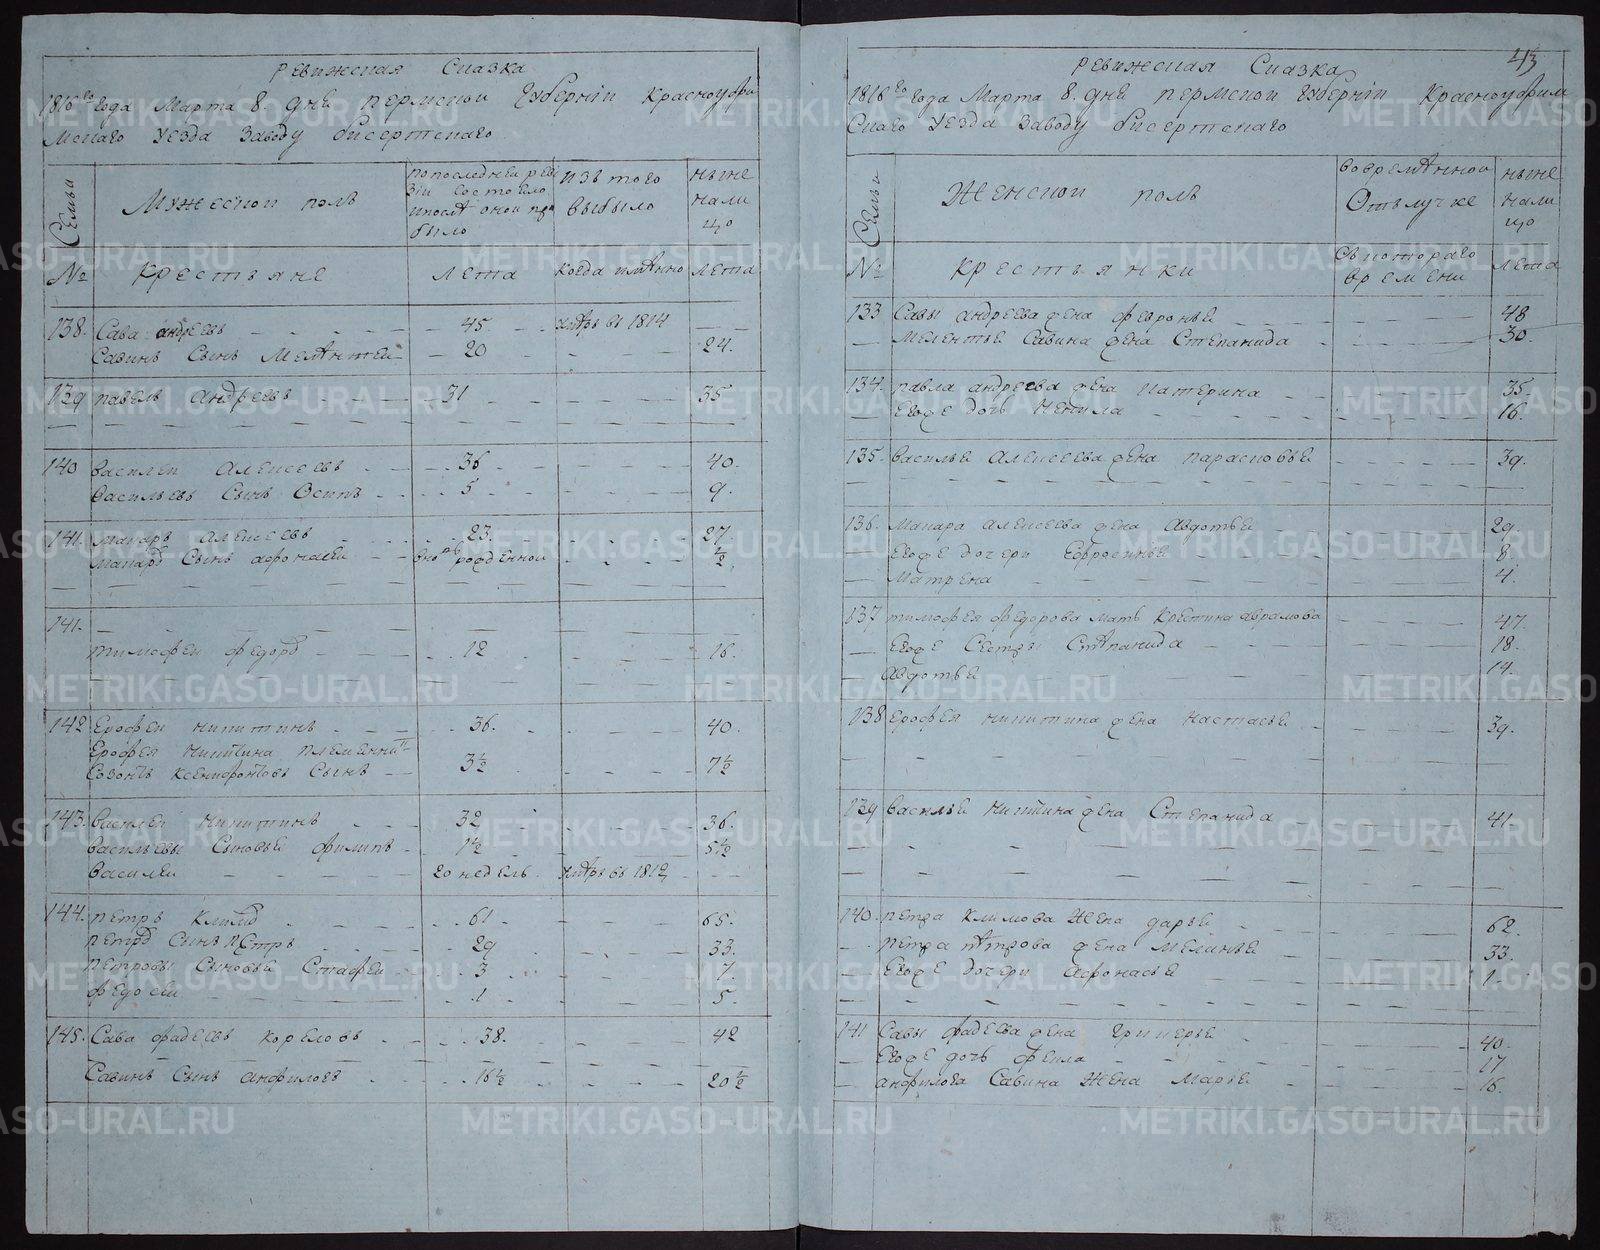 Ревижская Сказка
1816го года Марта 8. дня Пермской Губернiи Красноуфи
мскаго уезда Заводу бисертскаго
Семьи
Мужеской полъ
попоследней реви
зiи состояло
ипосле оной при
было
изъ того
выбыло
ныне
нали
цо
№
Крестьяне
лета
когда имянно
лета
138. Сава андреевъ 45 умръ въ 1814
Савинъ Сынъ Мелентей 20 24.
139 павелъ андреевъ 31 35
140 василей алексеевъ 36 40.
васильевъ Сынъ Осипъ 5 9.
141. макаръ алексеевъ 23. 27.
макаръ Сынъ афонасей вновь рожденной ½
141.
тимофей федоръ 12 16.
142 Ерофей никитинъ 36. 40.
Ерофея Никитина племянни
Созонтъ ксенифонтовъ Сынъ 3½ 7½
143. василей никитинъ 32 36.
васильевы Сыновья филипъ 1½ 5½
василей 20 недель умръ въ 1812
144. петръ климовъ 61 65.
петръ Сынъ петръ 29 33.
петровы Сыновья Стафей 3 7.
федосей 1 5.
145. Сава фадеевъ кореловъ 38. 42
Савинъ Сынъ анфилоей 16½ 20½
43
Ревижская Сказка
1816го года Марта 8. дня Пермской Губернiи Красноуфим
Скаго уезда Заводу бисертскаго
Семьи
Женской полъ
вовременной
Отълучке
ныне
нали
цо
№
крестьянки
Съ котораго
времени
лета
133 Савы андреева жена февронья 48
Мелентья Савина жена Степанида 30.
134. павла андреева жена катерина 35
Егоже дочь Ненила 16.
135. василья алексеева жена парасковья 39.
136. макара алексеева жена Авдотья 29.
Егоже дочери Ефросинья 8.
Матрена 4.
137 тимофея федорова мать крестина аврамова 47.
Егоже Сестры Степанида 18.
Авдотья 14.
138 Ерофея никитина жена настасья 39.
139 василья никитина жена Степанида 41.
140. петра климова жена дарья 62.
петра петрова жена Меланья 33.
Егоже дочери афонасья 1.
141 Савы фадеева жена гликерья 40.
Егоже дочь фекла 17
анфилоея Савина жена Марья 16.
METRIKI.GASO-URAL.RU